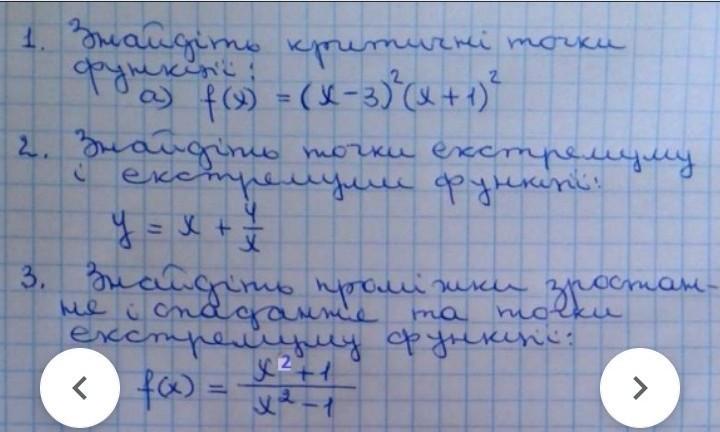 1. Знайдіть критичні точки
функції:
а) f(x) = (x-3)²(x+1)²
2. Знайдіть точки екстремуму
і екстремуми функції:
y = x + 4/x
3. Знайдіть проміжки зростан-
не і спадання та точки
екстремуму функції:
f(x) = x²+1 / x²-1